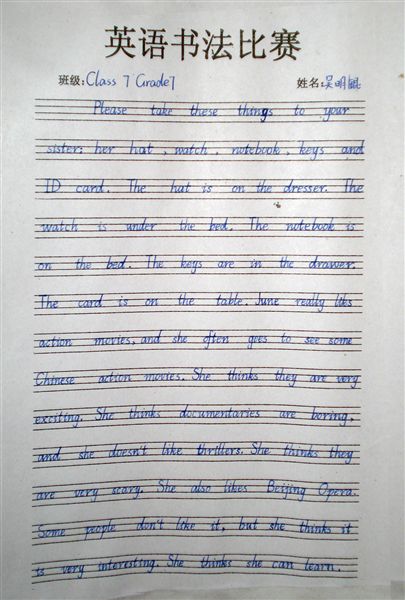 英语书法比赛
班级:Class 7 Grade7 姓名:吴明
Please take these things to your
sister: her hat, watch, notebook, keys and
ID card. The hat is on the dresser. The
watch is under the bed. The notebook is
on the bed. The keys are in the drawer.
The card is on the table. June really likes
action movies, and she often goes to see some
Chinese action movies. She thinks they are very
exciting. She thinks documentaries are boring,
and she doesn't like thrillers. She thinks they
are very scary. She also likes Beijing Opera.
Some people don't like it, but she thinks it
is very interesting. She thinks she can learn.